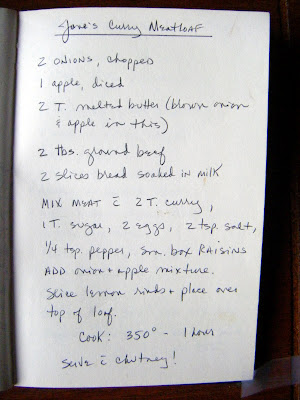 Jane's Curry Meatloaf
2 onions, chopped
1 apple, diced
2 T. melted butter (brown onion
& apple in this)
2 lbs. ground beef
2 slices bread soaked in milk
MIX MEAT c̄ 2 T. curry,
1 T. sugar, 2 eggs, 2 tsp. salt,
1/4 tsp. pepper, sm. box RAISINS
ADD onion + apple mixture.
Slice lemon rinds + place over
top of loaf.
Cook: 350° - 1 hour
Serve c̄ chutney!